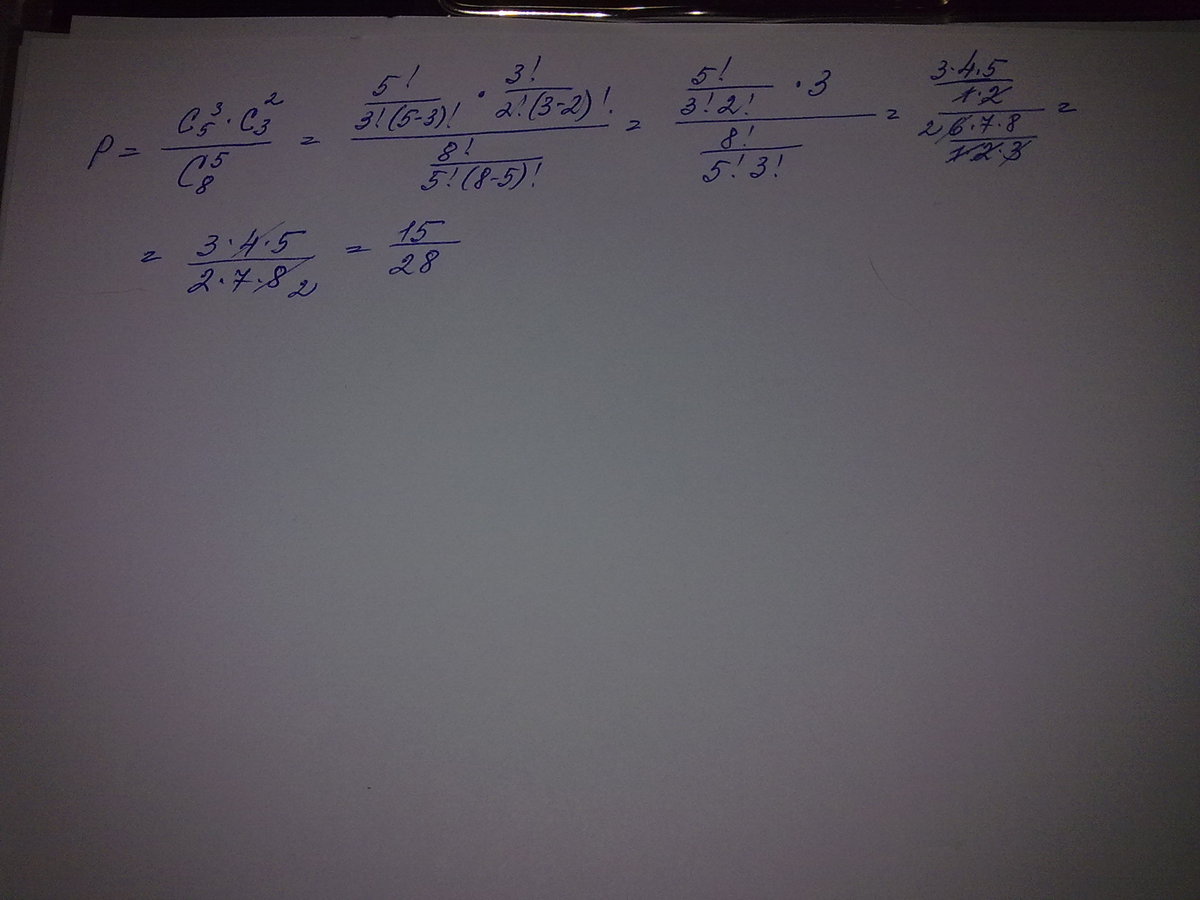 P = \frac{C_5^3 \cdot C_3^2}{C_8^5} = \frac{\frac{5!}{3!(5-3)!} \cdot \frac{3!}{2!(3-2)!}}{\frac{8!}{5!(8-5)!}} = \frac{\frac{5!}{3!2!} \cdot 3}{\frac{8!}{5!3!}} = \frac{\frac{3 \cdot 4 \cdot 5}{1 \cdot 2}}{\frac{2 6 \cdot 7 \cdot 8}{1 \cdot 2 \cdot 3}} =
= \frac{3 \cdot 4 \cdot 5}{2 \cdot 7 \cdot 8 2} = \frac{15}{28}